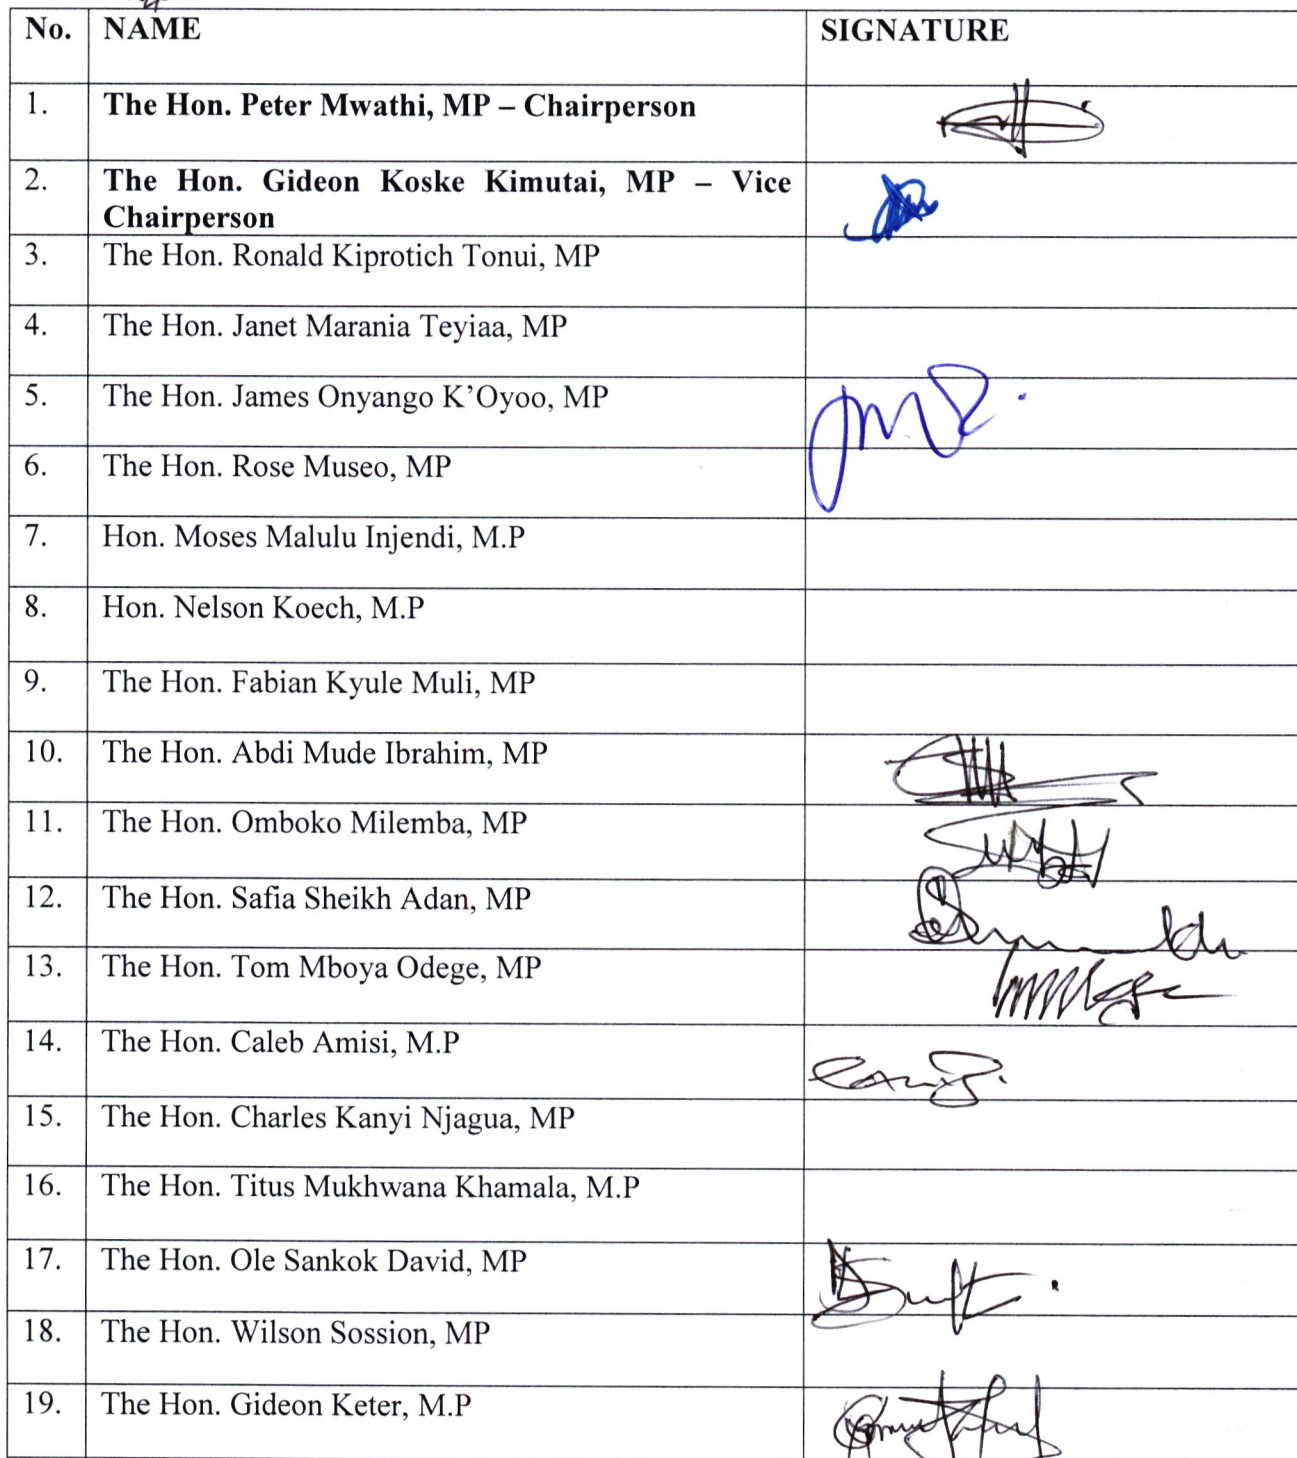 No. NAME SIGNATURE
1. The Hon. Peter Mwathi, MP – Chairperson
2. The Hon. Gideon Koske Kimutai, MP – Vice
Chairperson
3. The Hon. Ronald Kiprotich Tonui, MP
4. The Hon. Janet Marania Teyiaa, MP
5. The Hon. James Onyango K’Oyoo, MP
6. The Hon. Rose Museo, MP
7. Hon. Moses Malulu Injendi, M.P
8. Hon. Nelson Koech, M.P
9. The Hon. Fabian Kyule Muli, MP
10. The Hon. Abdi Mude Ibrahim, MP
11. The Hon. Omboko Milemba, MP
12. The Hon. Safia Sheikh Adan, MP
13. The Hon. Tom Mboya Odege, MP
14. The Hon. Caleb Amisi, M.P
15. The Hon. Charles Kanyi Njagua, MP
16. The Hon. Titus Mukhwana Khamala, M.P
17. The Hon. Ole Sankok David, MP
18. The Hon. Wilson Sossion, MP
19. The Hon. Gideon Keter, M.P